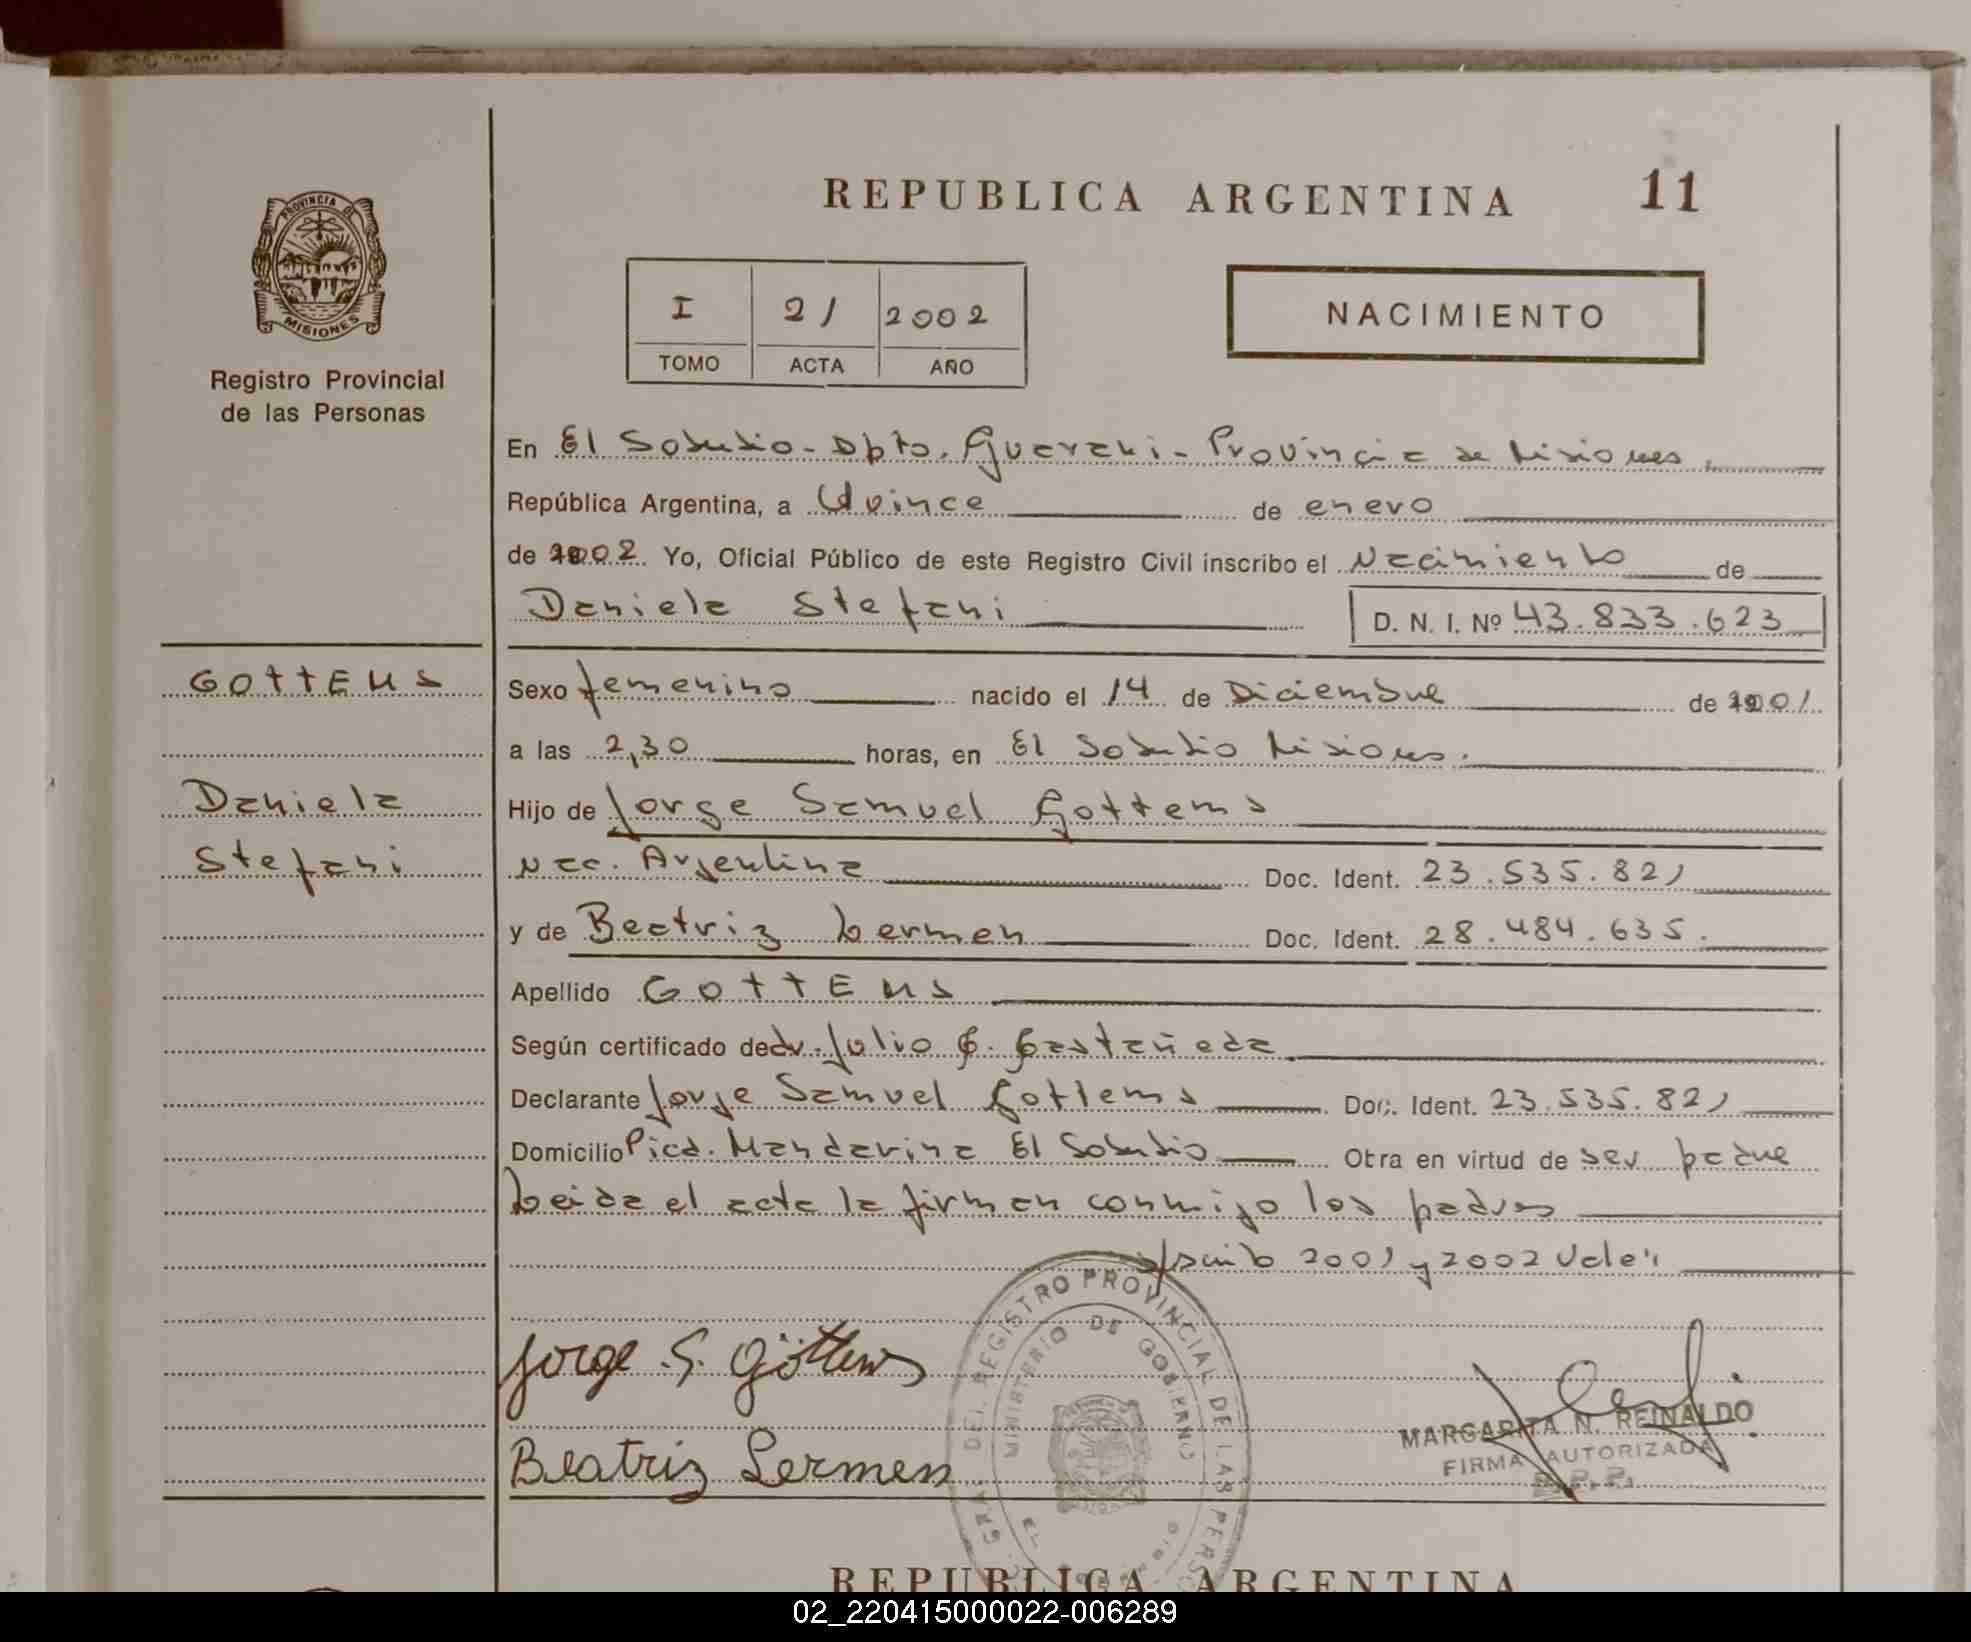 REPUBLICA ARGENTINA 11
PROVINCIA DE
MISIONES
Registro Provincial
de las Personas
I 21 2002
TOMO ACTA AÑO
NACIMIENTO
En El Soberbio - Dpto. Guarani - Provincia de Misiones.
República Argentina, a Quince de enero
de 2002 Yo, Oficial Público de este Registro Civil inscribo el Nacimiento de
Daniela Stefani D. N. I. Nº 43.833.623
GOTTEMS
Sexo femenino nacido el 14 de Diciembre de 2001
a las 2,30 horas, en El Soberbio Misiones.
Daniela
Hijo de Jorge Samuel Gottems
Stefani
Nac. Argentina Doc. Ident. 23.535.821
y de Beatriz Lermen Doc. Ident. 28.484.635.
Apellido GOTTEMS
Según certificado de dr. Julio C. Castañeda.
Declarante Jorge Samuel Gottems Doc. Ident. 23.535.821
Domicilio Picd. Mandarina El Soberbio Obra en virtud de ser padre
Leida el acta la firman conmigo los padres
s/scrib 2001 y 2002 Vale:
Jorge S. Göttems
Beatriz Lermen
REGISTRO PROVINCIAL DE LAS PERSO
MINISTERIO DE GOBIERNO
MARGARITA N. REINALDO
FIRMA AUTORIZADA
REPUBLICA ARGENTINA
02_220415000022-006289